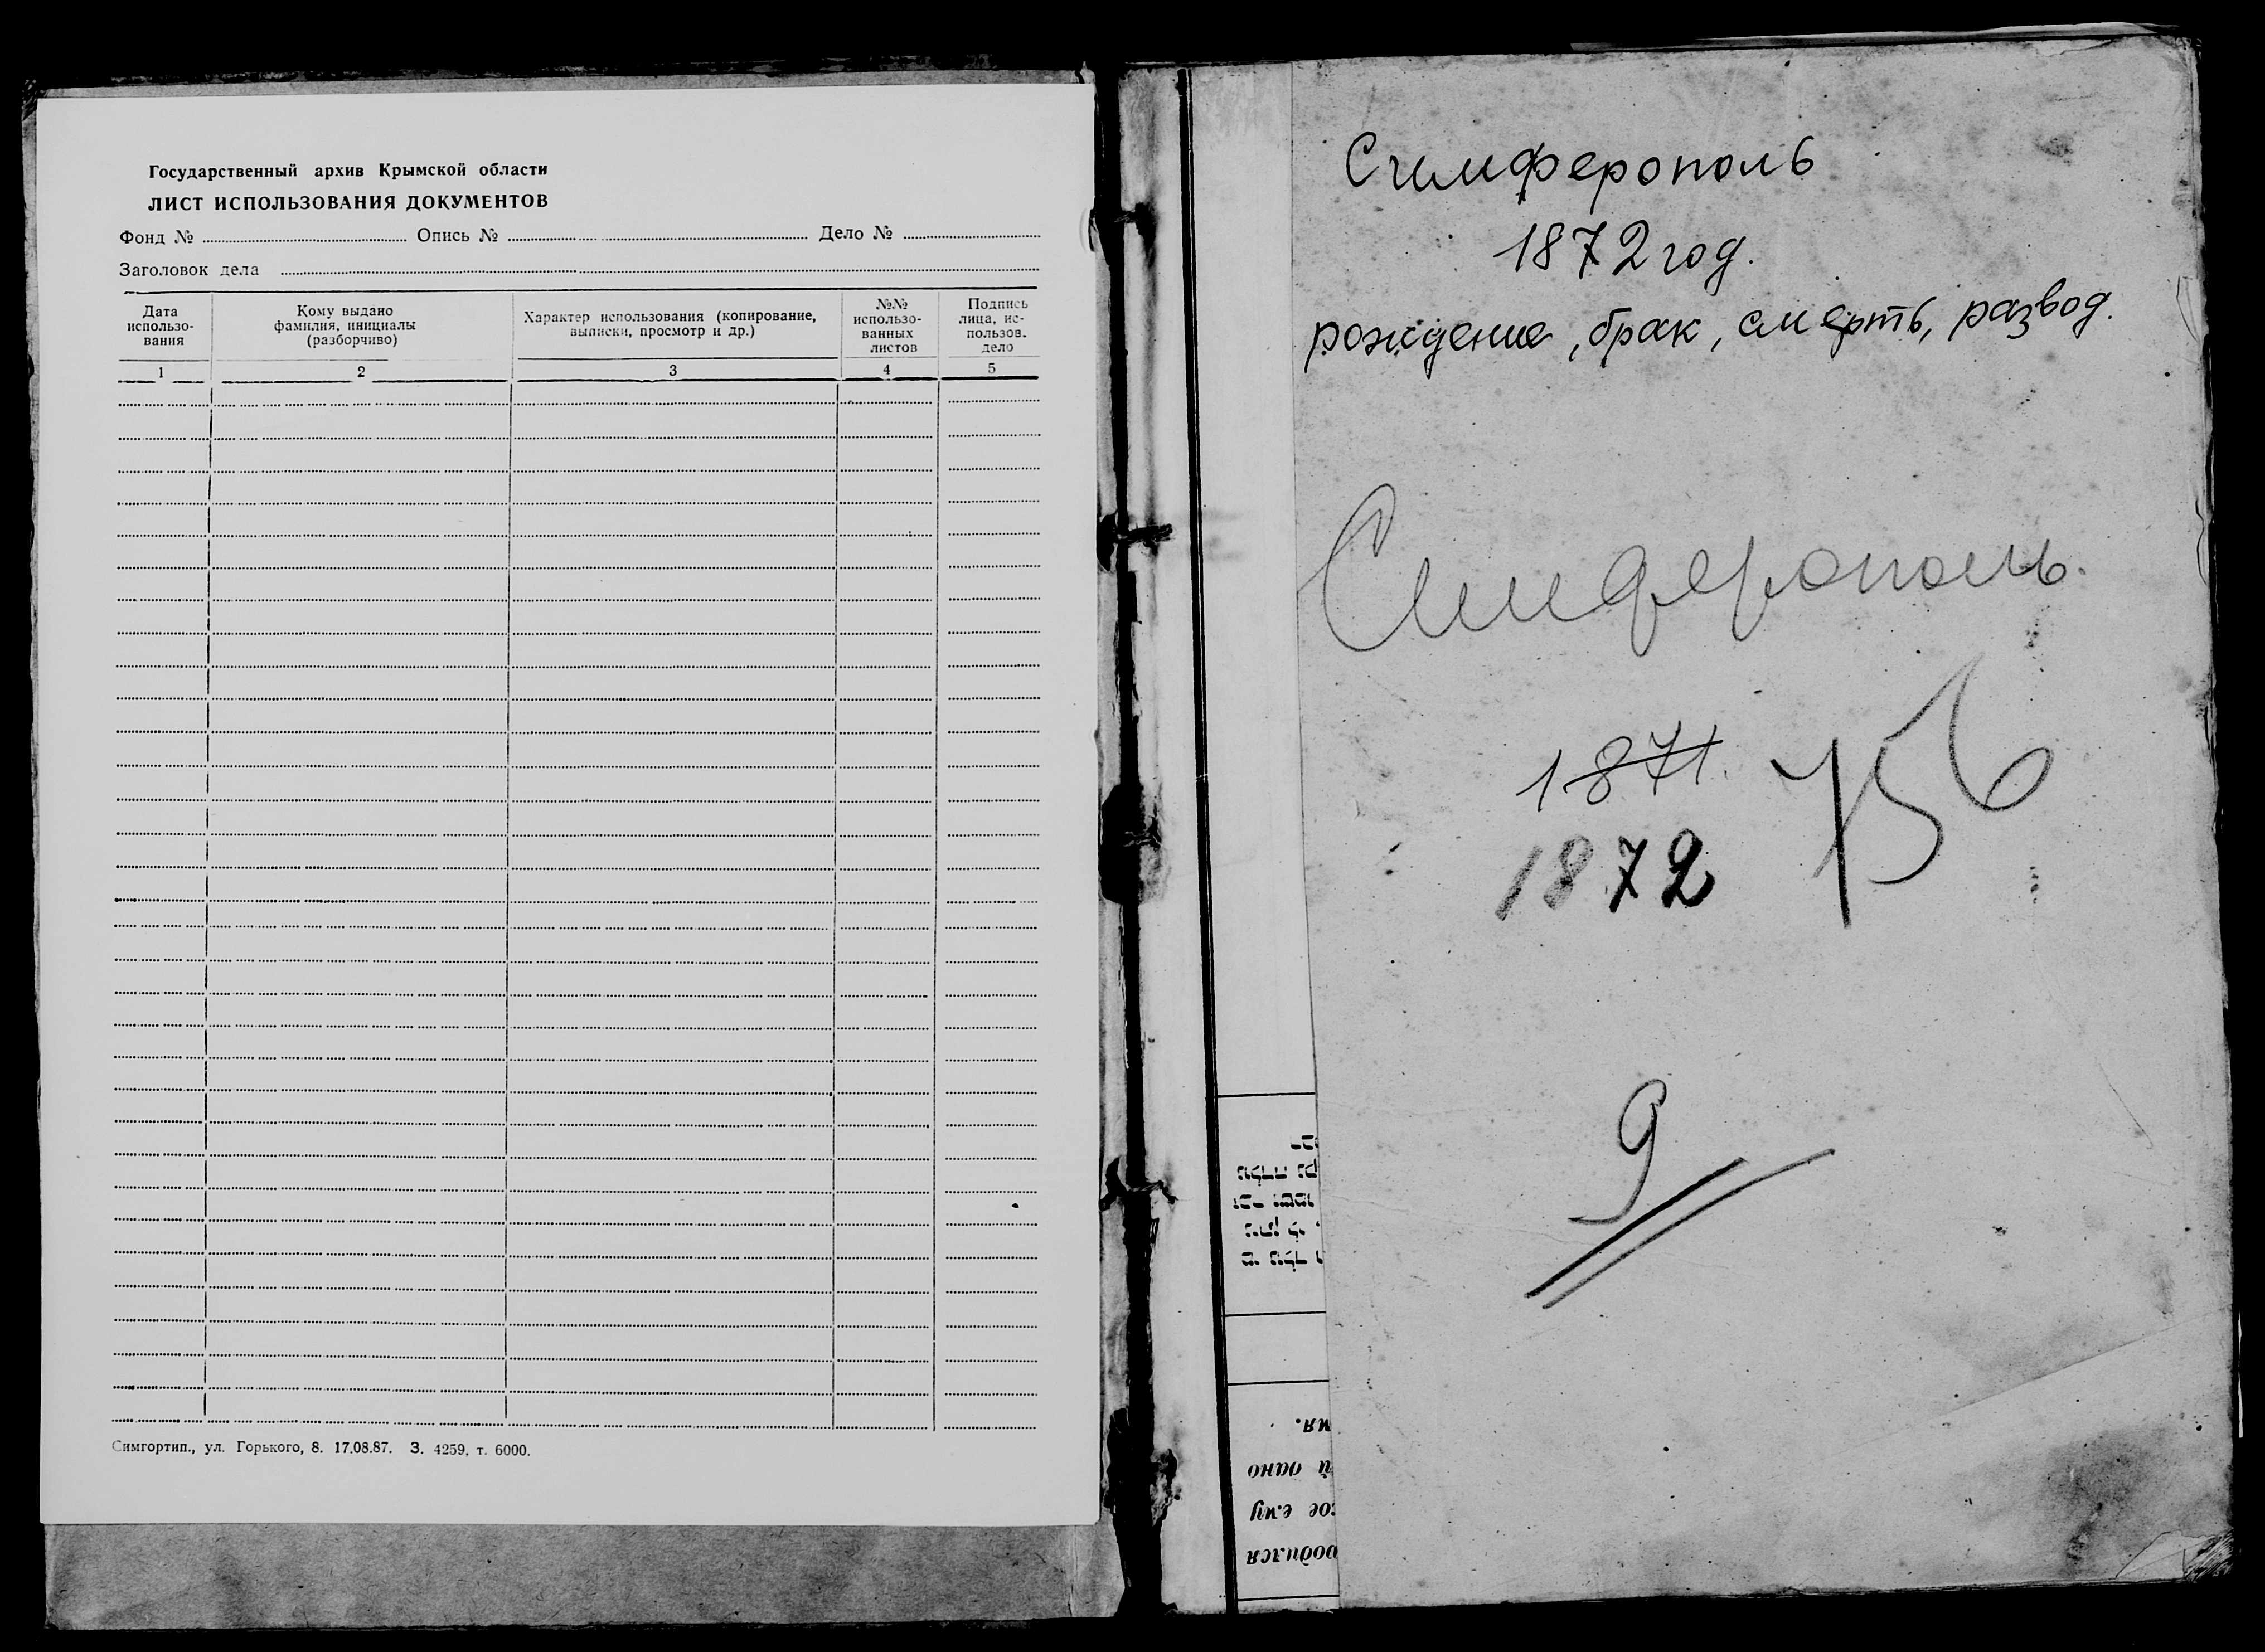 Государственный архив Крымской области
ЛИСТ ИСПОЛЬЗОВАНИЯ ДОКУМЕНТОВ
Фонд № Опись № Дело №
Заголовок дела
Дата использо-вания
Кому выдано фамилия, инициалы (разборчиво)
Характер использования (копирование, выписки, просмотр и др.)
№№ использо-ванных листов
Подпись лица, ис-пользов. дело
1 2 3 4 5
Симгортип., ул. Горького, 8. 17.08.87. З. 4259, т. 6000.
Симферополь
1872 год.
рождение, брак, смерть, развод.
Симферополь.
1871.
756
1872
9
мя.
й оано
ое ему
родился